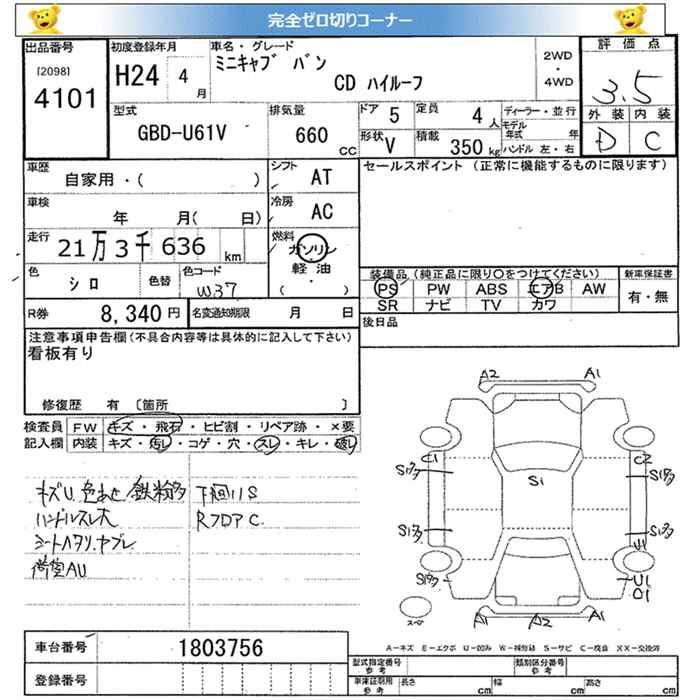 完全ゼロ切りコーナー
出品番号
[2098]
4101
初度登録年月
H24 4月
車名・グレード
ミニキャブ バン
CD ハイルーフ
2WD
・
4WD
評価点
3.5
外装 内装
D C
型式
GBD-U61V
排気量
660 CC
ドア 5
形状 V
定員 4人
積載 350 kg
ディーラー・並行
モデル年式 年
ハンドル 左・右
車歴
自家用・( )
シフト AT
車検
年 月( 日)
冷房 AC
走行
21万3千636 km
燃料
ガソリン
軽油
( ・ )
色 シロ
色替
色コード W37
R券 8,340円
名変通知期限 月 日
セールスポイント (正常に機能するものに限ります)
装備品 (純正品に限り〇をつけてください)
PS PW ABS エアB AW
SR ナビ TV カワ
新車保証書
有・無
後日品
注意事項申告欄(不具合内容等は具体的に記入して下さい)
看板有り
修復歴 有 〔箇所 〕
検査員記入欄
FW キズ・飛石・ヒビ割・リペア跡・×要
内装 キズ・汚レ・コゲ・穴・スレ・キレ・破レ
キズU.色あせ.鉄粉多
ハンドルスレ大
シートヘタリ.ヤブレ
AU
下廻りS
RフロアC
A2 A1
C1 C2
S1多 S1多
S1
S1多 S1多
U1
S1多 U1
O1
A1 A2 A1
スペ
A-キズ E-エクボ U-凹み W-補修跡 S-サビ C-腐食 XX-交換済
車台番号 1803756
登録番号
型式指定番号 参考
類別区分番号 参考
車庫証明用 参考
長さ cm 幅 cm 高さ cm